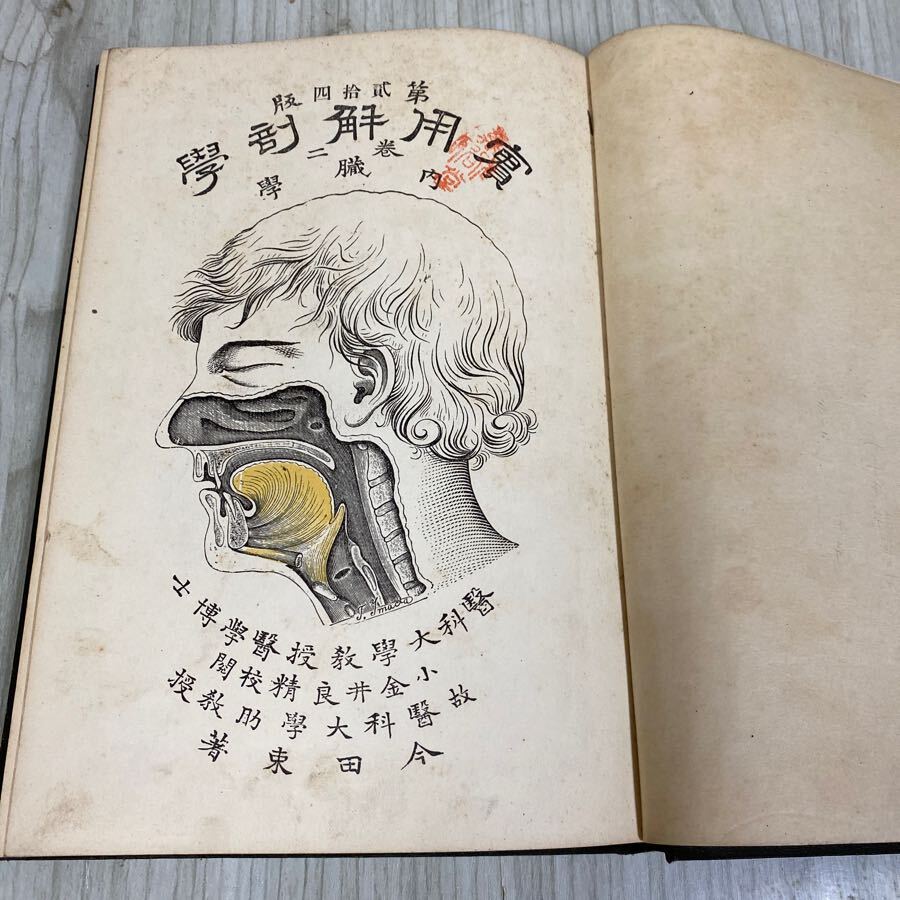 第貳拾四版
實用解剖學
卷二
內臓學
T. Imada
醫科大學教授醫學博士
小金井良精校閱
故醫科大學助教授
今田束著